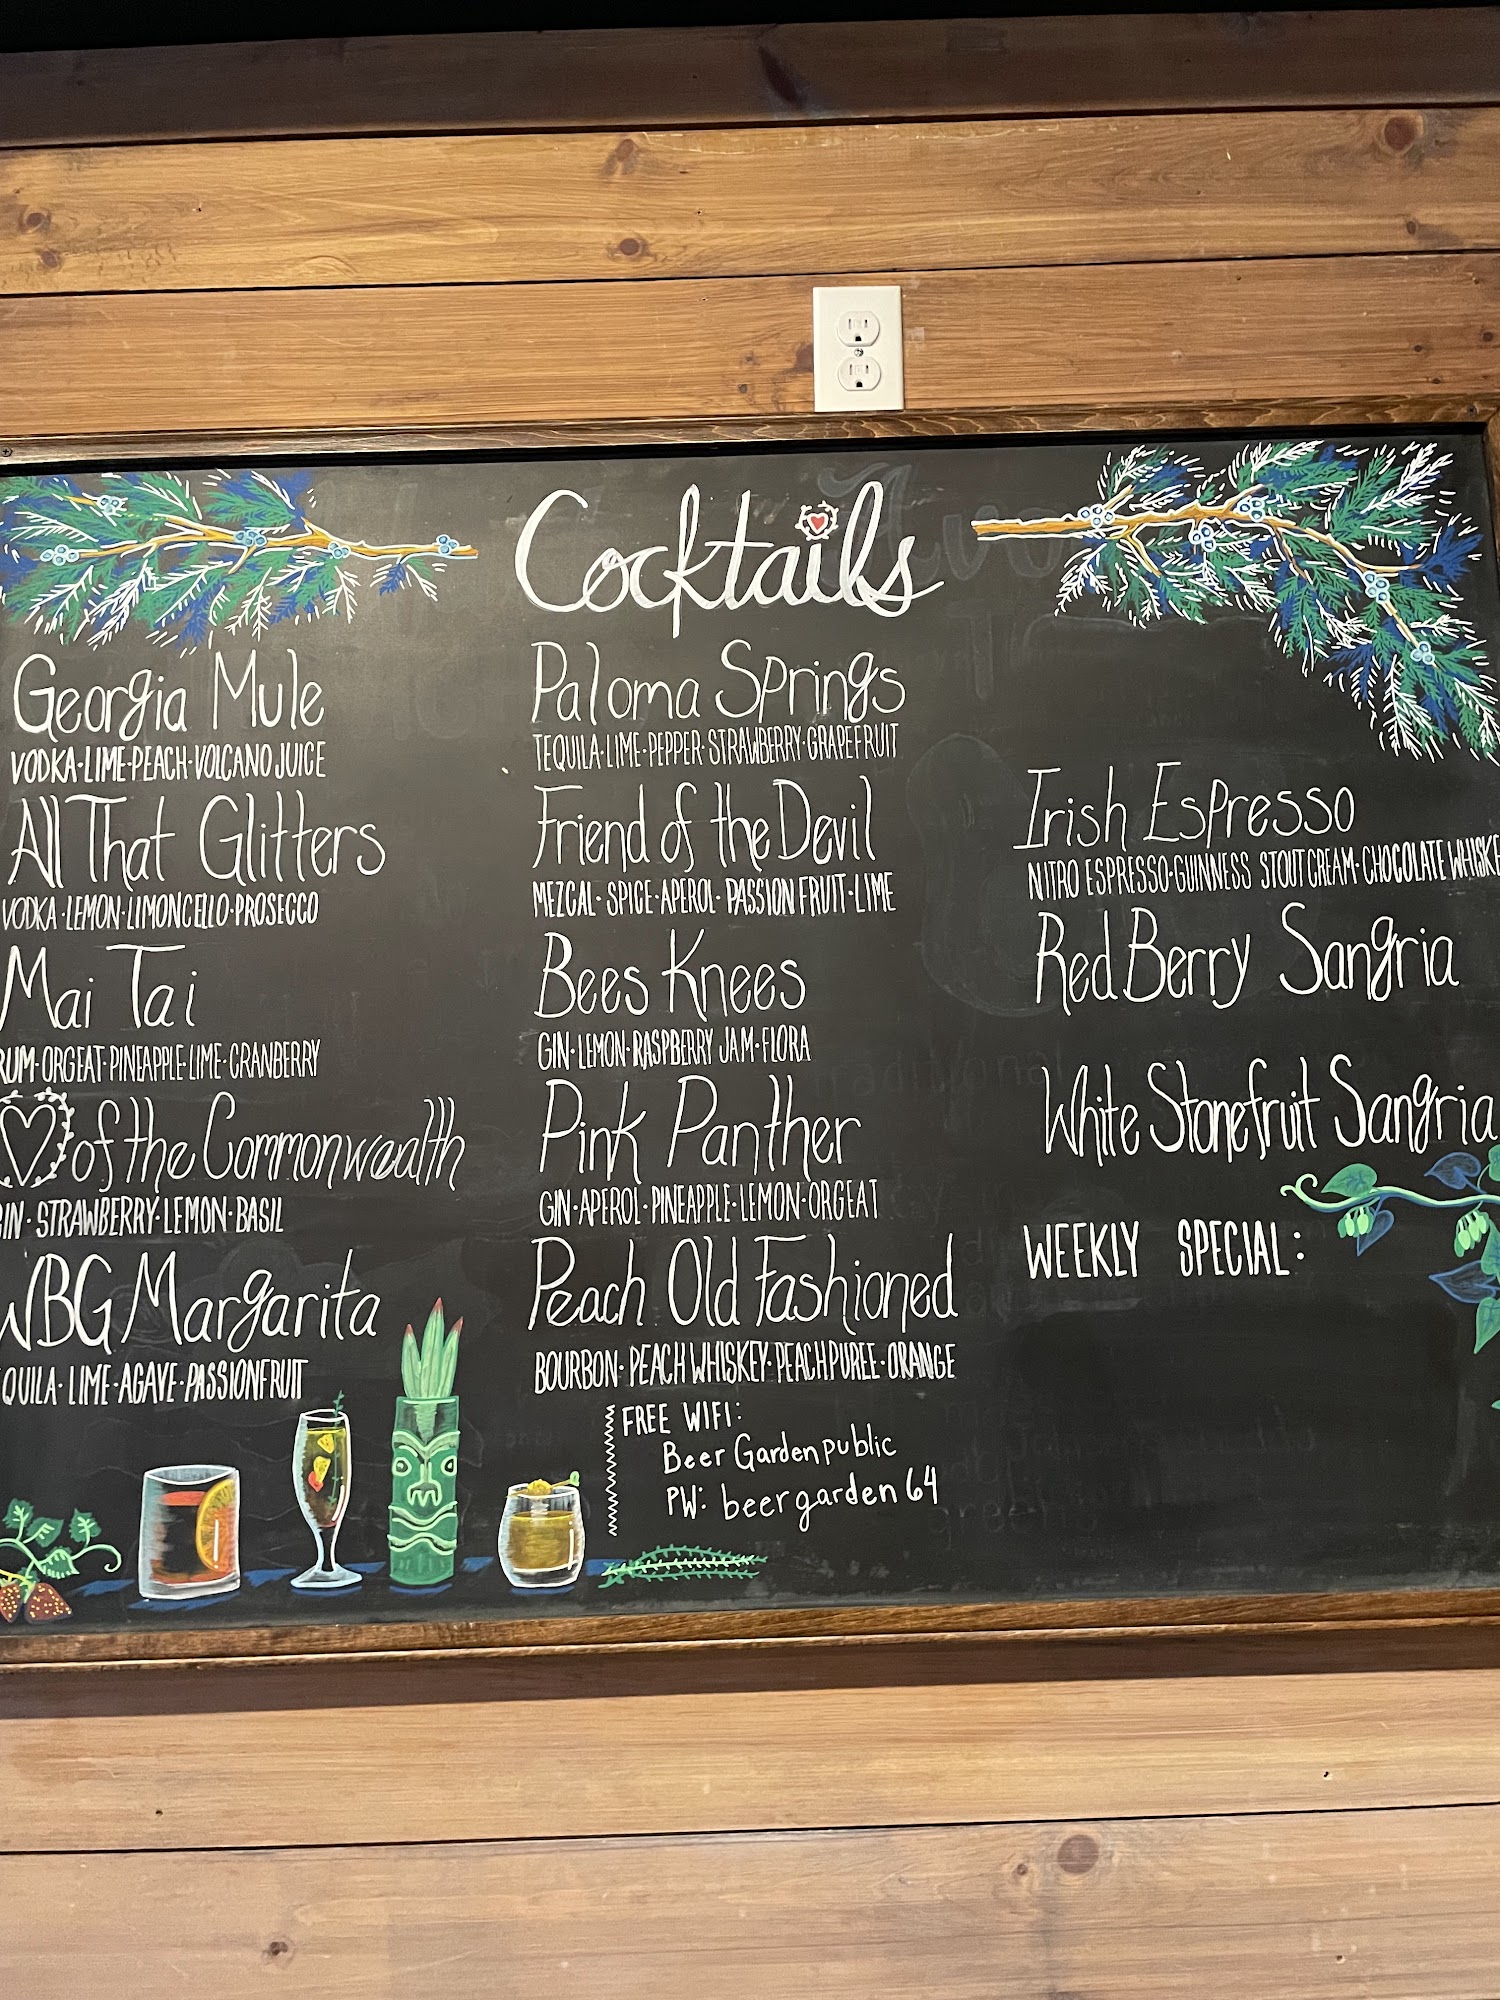 Cocktails
Georgia Mule
VODKA·LIME·PEACH·VOLCANO JUICE
All That Glitters
VODKA·LEMON·LIMONCELLO·PROSECCO
Mai Tai
RUM·ORGEAT·PINEAPPLE·LIME·CRANBERRY
of the Commonwealth
GIN·STRAWBERRY·LEMON·BASIL
WBG Margarita
QUILA·LIME·AGAVE·PASSIONFRUIT
Paloma Springs
TEQUILA·LIME·PEPPER·STRAWBERRY·GRAPEFRUIT
Friend of the Devil
MEZCAL·SPICE·APEROL·PASSION FRUIT·LIME
Bees Knees
GIN·LEMON·RASPBERRY JAM·FLORA
Pink Panther
GIN·APEROL·PINEAPPLE·LEMON·ORGEAT
Peach Old Fashioned
BOURBON·PEACH WHISKEY·PEACH PUREE·ORANGE
FREE WIFI:
Beer Garden public
PW: beergarden64
Irish Espresso
NITRO ESPRESSO·GUINNESS STOUT CREAM·CHOCOLATE WHISKE
Red Berry Sangria
White Stonefruit Sangria
WEEKLY SPECIAL: